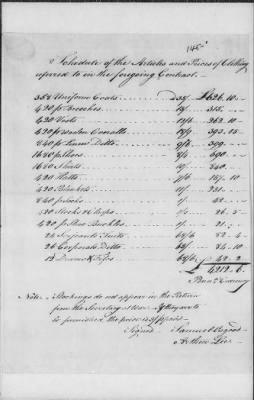 145
Schedule of the Articles and Prices of Clothing
referred to in the foregoing Contract.
358 Uniform Coats 35/ £626.10
420 pr Breeches 15/ 315.
420 Vests 12/6 262.10
420 pr woolen Overalls 18/9 393.15
840 pr Linen Ditto 9/6 399.
1680 pr Shoes 690.
1680 Shirts 10/ 840.
420 Hatts 7/6 157.10
420 Blankets 11/ 231.
840 pr Socks 1/ 42.
420 Stocks & Clasps 1/3 26.5
420 pr Shoe Buckles
26 Serjeants Suits 82.4
26 Corporals Ditto 84.10
13 Drums & Fifes 42.2
£ 4212.6
Penna Currency
Note. Stockings do not appear in the Return
from the Secretary at War. If they are to
be furnished the price is
Signed Samuel Osgood
Arthur Lee